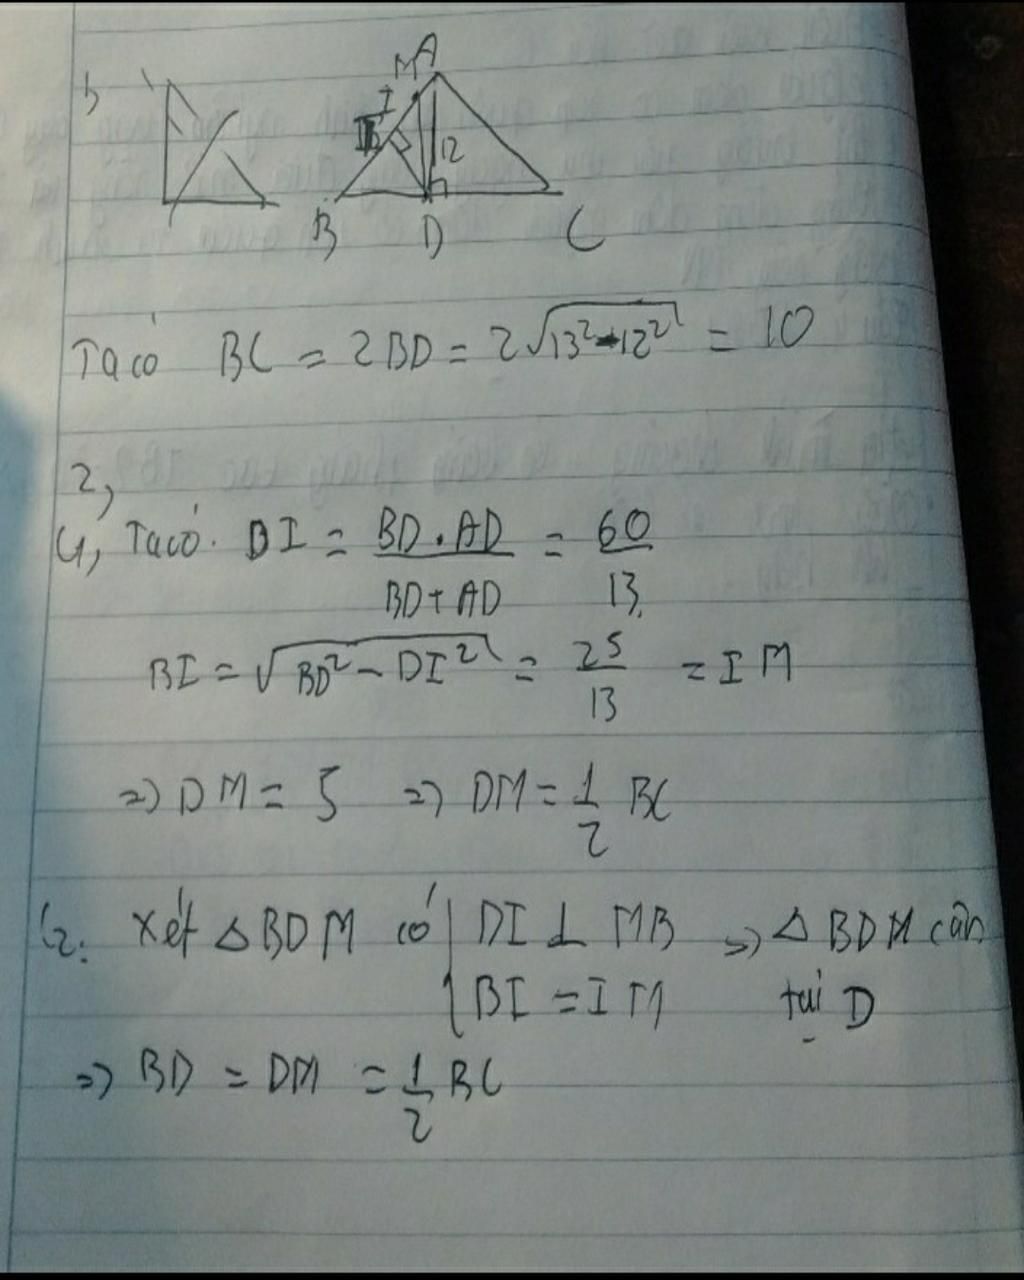 b
M A
I
12
B D C
Ta có BC = 2BD = 2√13²-12² = 10
2,
C1, Ta có. DI = BD . AD / BD + AD = 60 / 13
BI = √BD² - DI² = 25 / 13 = IM
=> DM = 5 => DM = 1/2 BC
C2. Xét Δ BDM có { DI ⊥ MB => Δ BDM cân
BI = IM tại D
=> BD = DM = 1/2 BC